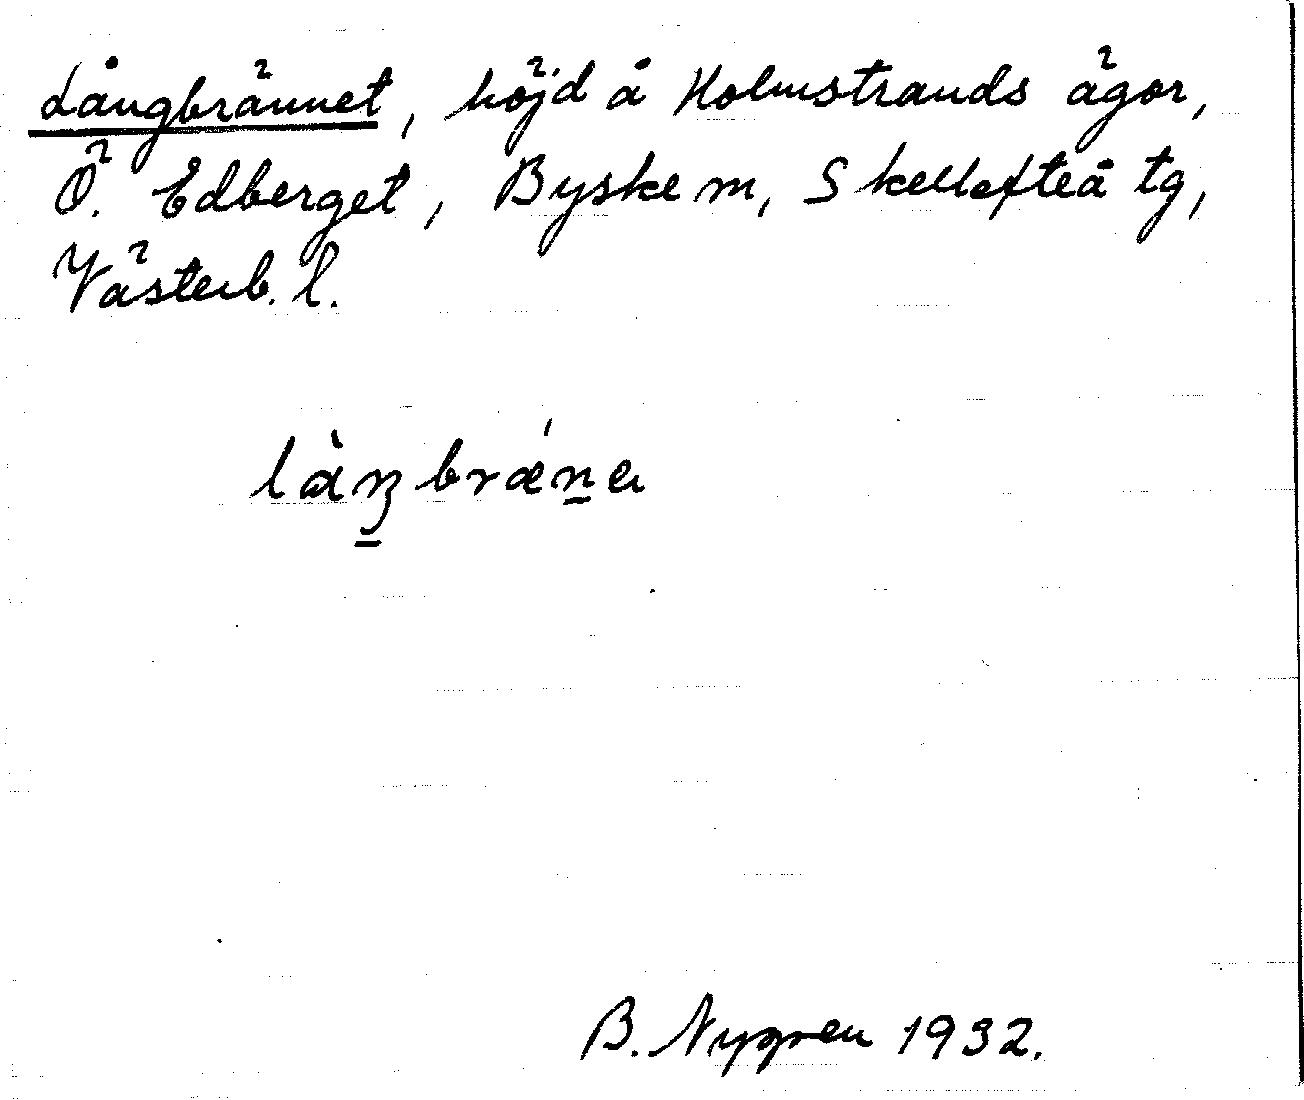 Långbrännet, höjd å Holmstrands ägor,
Ö. Edberget, Byske m, Skellefteå tg,
Västerb. l.
làŋbrǽna
B. Nygren 1932.